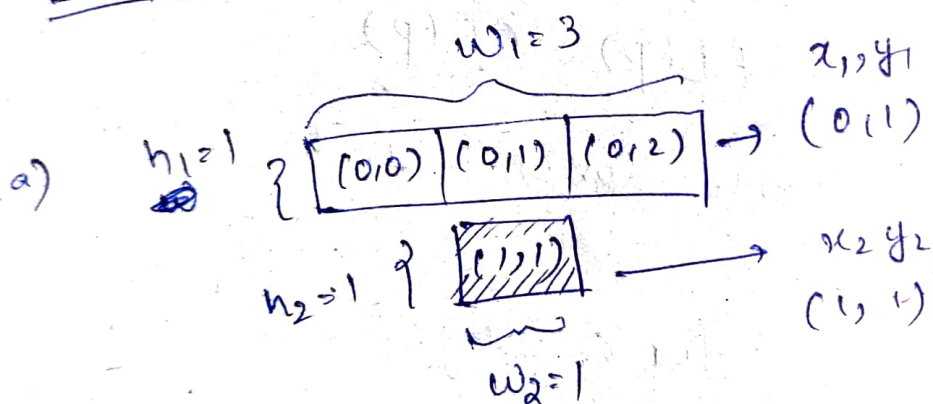 w₁=3
x₁,y₁
a) h₁=1 { (0,0) (0,1) (0,2) → (0,1)
h₂=1 { (1,1) → x₂ y₂
(1,1)
w₂=1